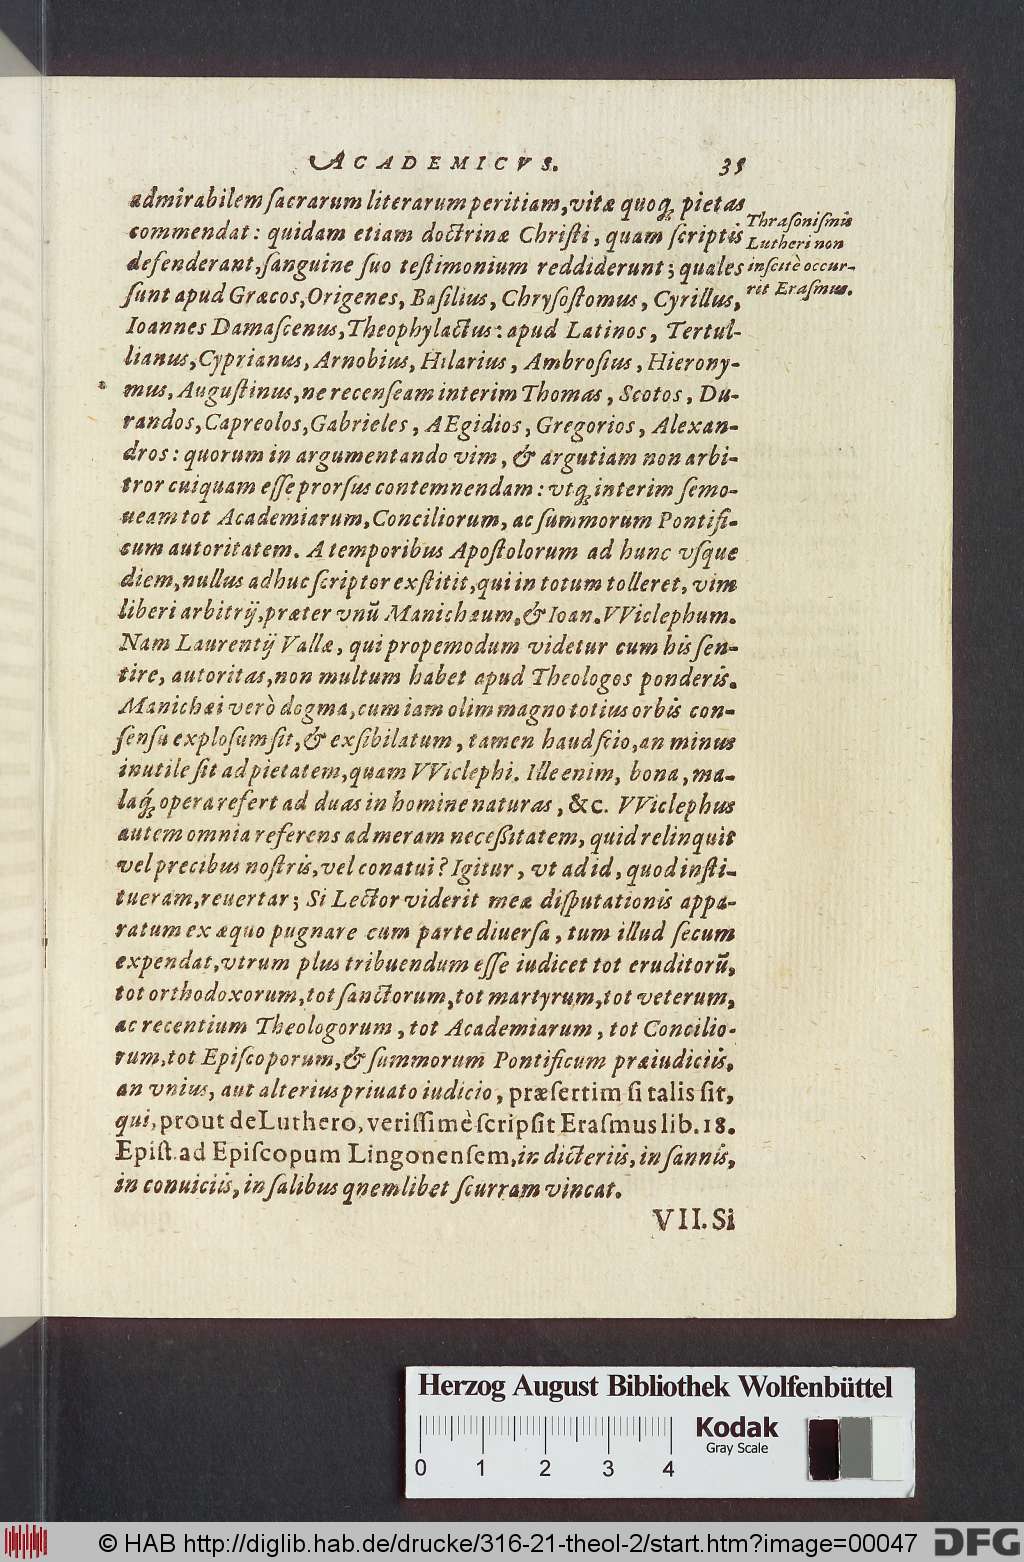 ACADEMICVS. 35
admirabilem ſacrarum literarum peritiam, vitæ quoq; pietas
commendat: quidam etiam doctrinæ Chriſti, quam ſcriptis
defenderant, ſanguine ſuo teſtimonium reddiderunt; quales
ſunt apud Græcos, Origenes, Baſilius, Chryſoſtomus, Cyrillus,
Ioannes Damaſcenus, Theophylactus: apud Latinos, Tertul-
lianus, Cyprianus, Arnobius, Hilarius, Ambroſius, Hierony-
mus, Auguſtinus, ne recenſeam interim Thomas, Scotos, Du-
randos, Capreolos, Gabrieles, AEgidios, Gregorios, Alexan-
dros: quorum in argumentando vim, & argutiam non arbi-
tror cuiquam eſſe prorſus contemnendam: vtq; interim ſemo-
ueam tot Academiarum, Conciliorum, ac ſummorum Pontifi-
cum autoritatem. A temporibus Apoſtolorum ad hunc vſque
diem, nullus adhuc ſcriptor exſtitit, qui in totum tolleret, vim
liberi arbitrij, præter vnũ Manichæum, & Ioan. VViclephum.
Nam Laurentij Vallæ, qui propemodum videtur cum his ſen-
tire, autoritas, non multum habet apud Theologos ponderis.
Manichæi verò dogma, cum iam olim magno totius orbis con-
ſenſu exploſum ſit, & exſibilatum, tamen haud ſcio, an minus
inutile ſit ad pietatem, quam VViclephi. Ille enim, bona, ma-
laq́; opera refert ad duas in homine naturas, &c. VViclephus
autem omnia referens ad meram neceßitatem, quid relinquit
vel precibus noſtris, vel conatui? Igitur, vt ad id, quod inſti-
tueram, reuertar; Si Lector viderit meæ diſputationis appa-
ratum ex æquo pugnare cum parte diuerſa, tum illud ſecum
expendat, vtrum plus tribuendum eſſe iudicet tot eruditorũ,
tot orthodoxorum, tot ſanctorum, tot martyrum, tot veterum,
ac recentium Theologorum, tot Academiarum, tot Concilio-
rum, tot Epiſcoporum, & ſummorum Pontificum præiudiciis,
an vnius, aut alterius priuato iudicio, præſertim ſi talis ſit,
qui, prout de Luthero, veriſſimè ſcripſit Eraſmus lib. 18.
Epiſt. ad Epiſcopum Lingonenſem, in dicteriis, in ſannis,
in conuiciis, in ſalibus qnemlibet ſcurram vincat.
VII. Si
Thraſoniſmis
Lutheri non
inſcitè occur-
rit Eraſmus.
Herzog August Bibliothek Wolfenbüttel
Kodak
Gray Scale
0 1 2 3 4
© HAB http://diglib.hab.de/drucke/316-21-theol-2/start.htm?image=00047
DFG